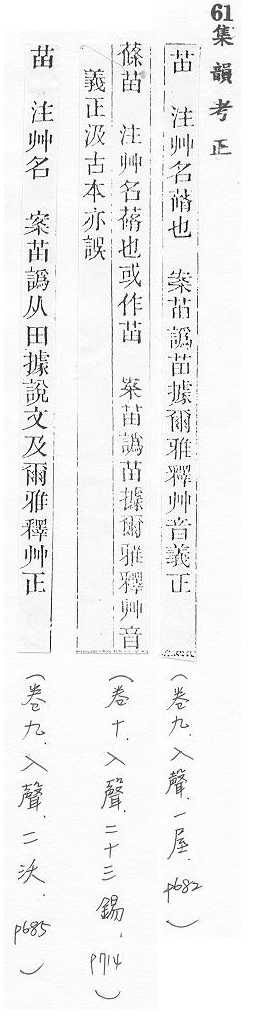 61集韻考正
苖 注艸名蓨也 案苖譌苗據爾雅釋艸音義正
(卷九.入聲.一屋.p682)
蓨苖 注艸名蓨也或作苖 案苖譌苗據爾雅釋艸音
義正汲古本亦誤
(卷十.入聲.二十三錫.p714)
苖 注艸名 案苖譌从田據說文及爾雅釋艸正
(卷九.入聲.二沃.p685)